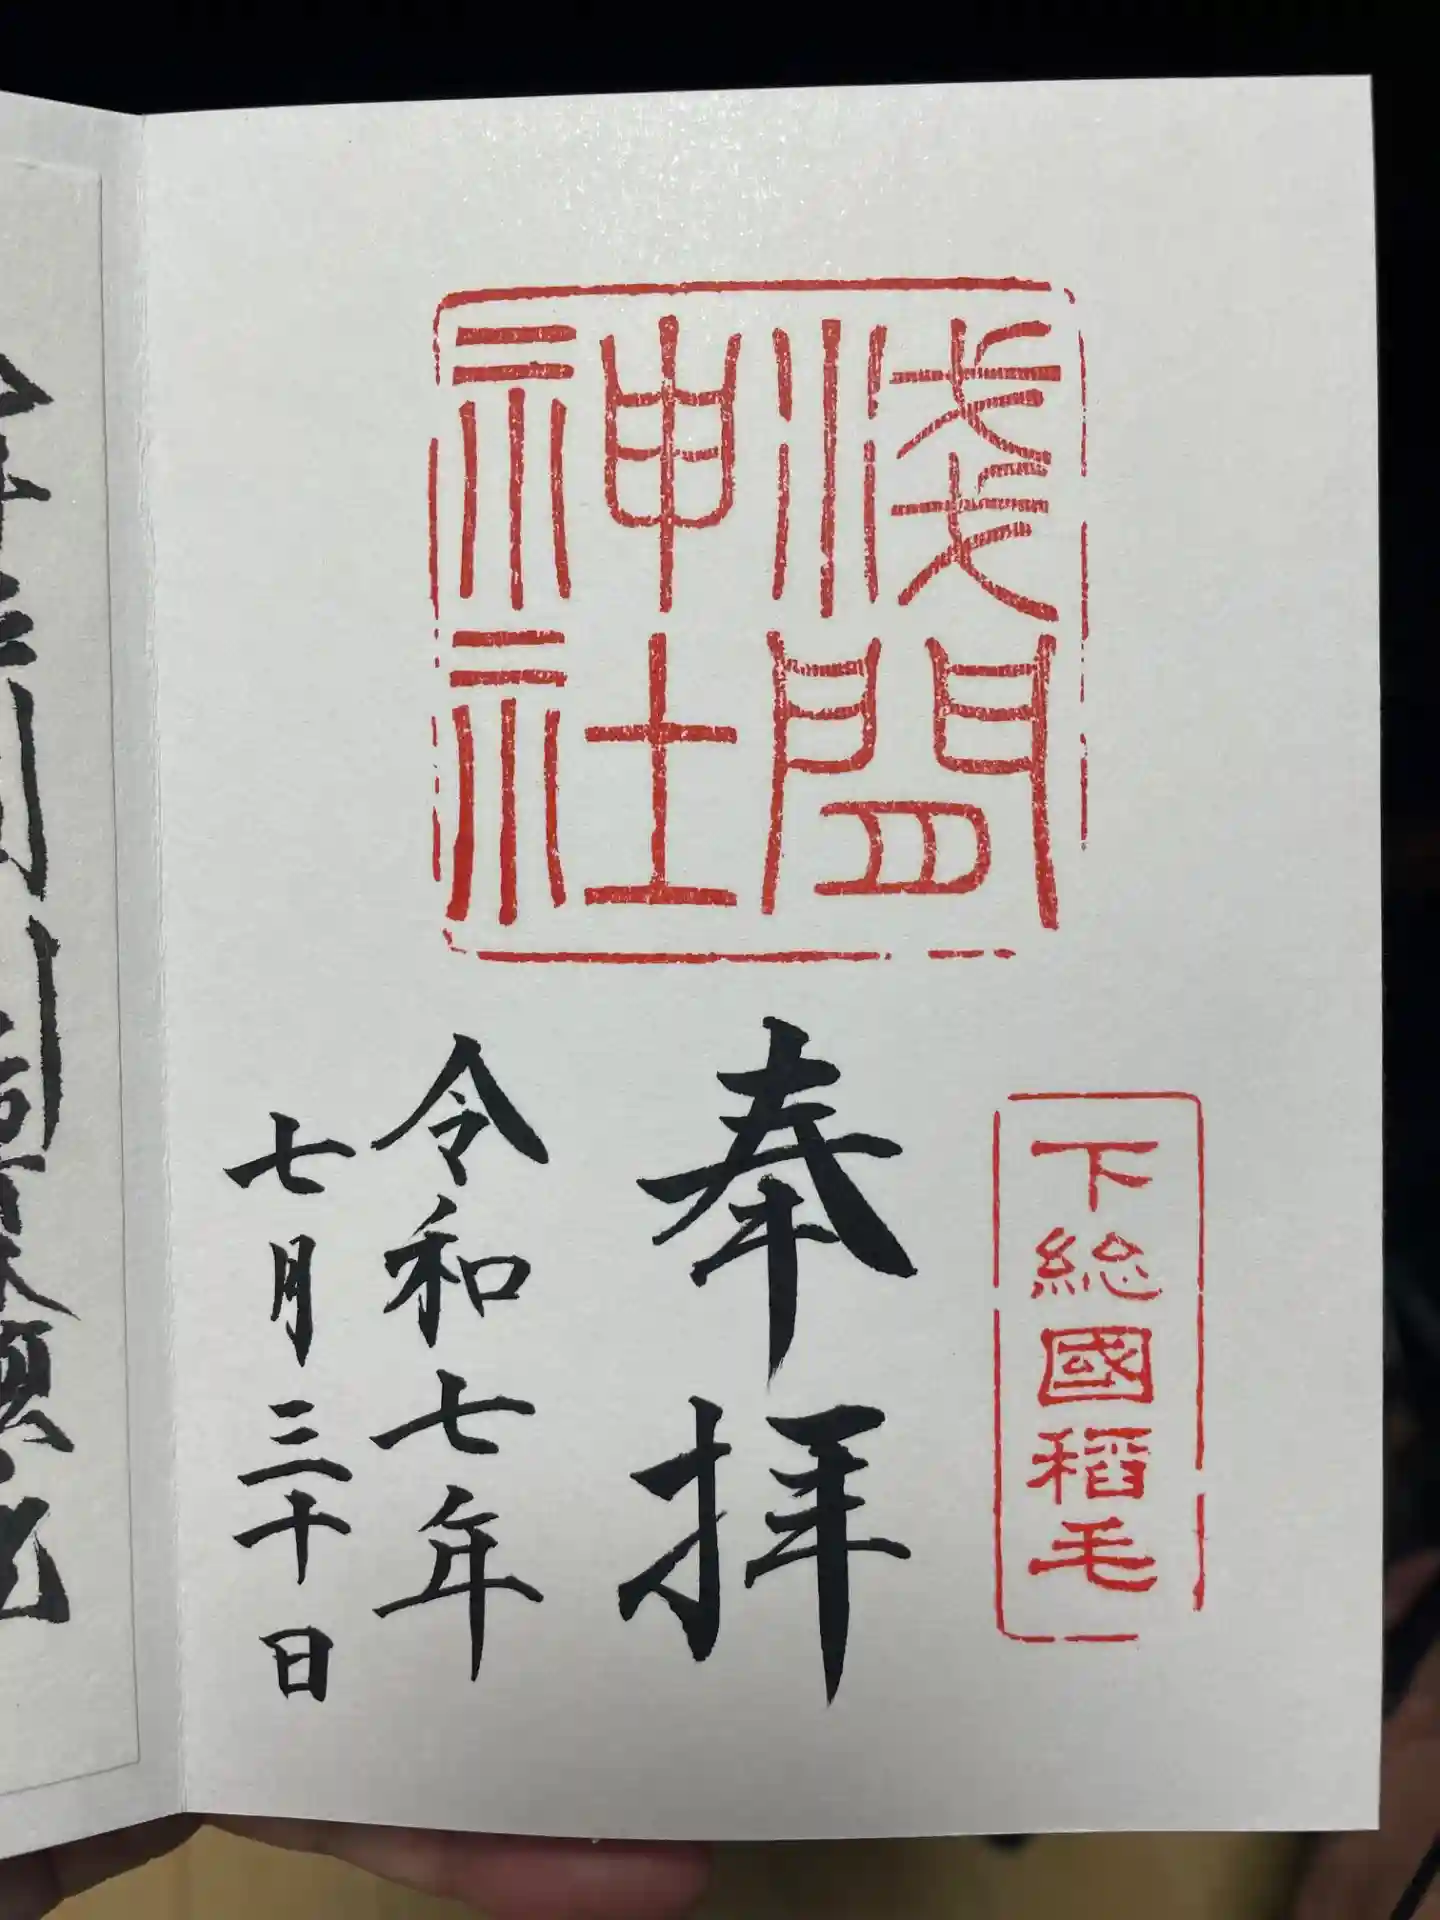 下総國稲毛
淺間
神社
奉拝
令和七年
七月三十日